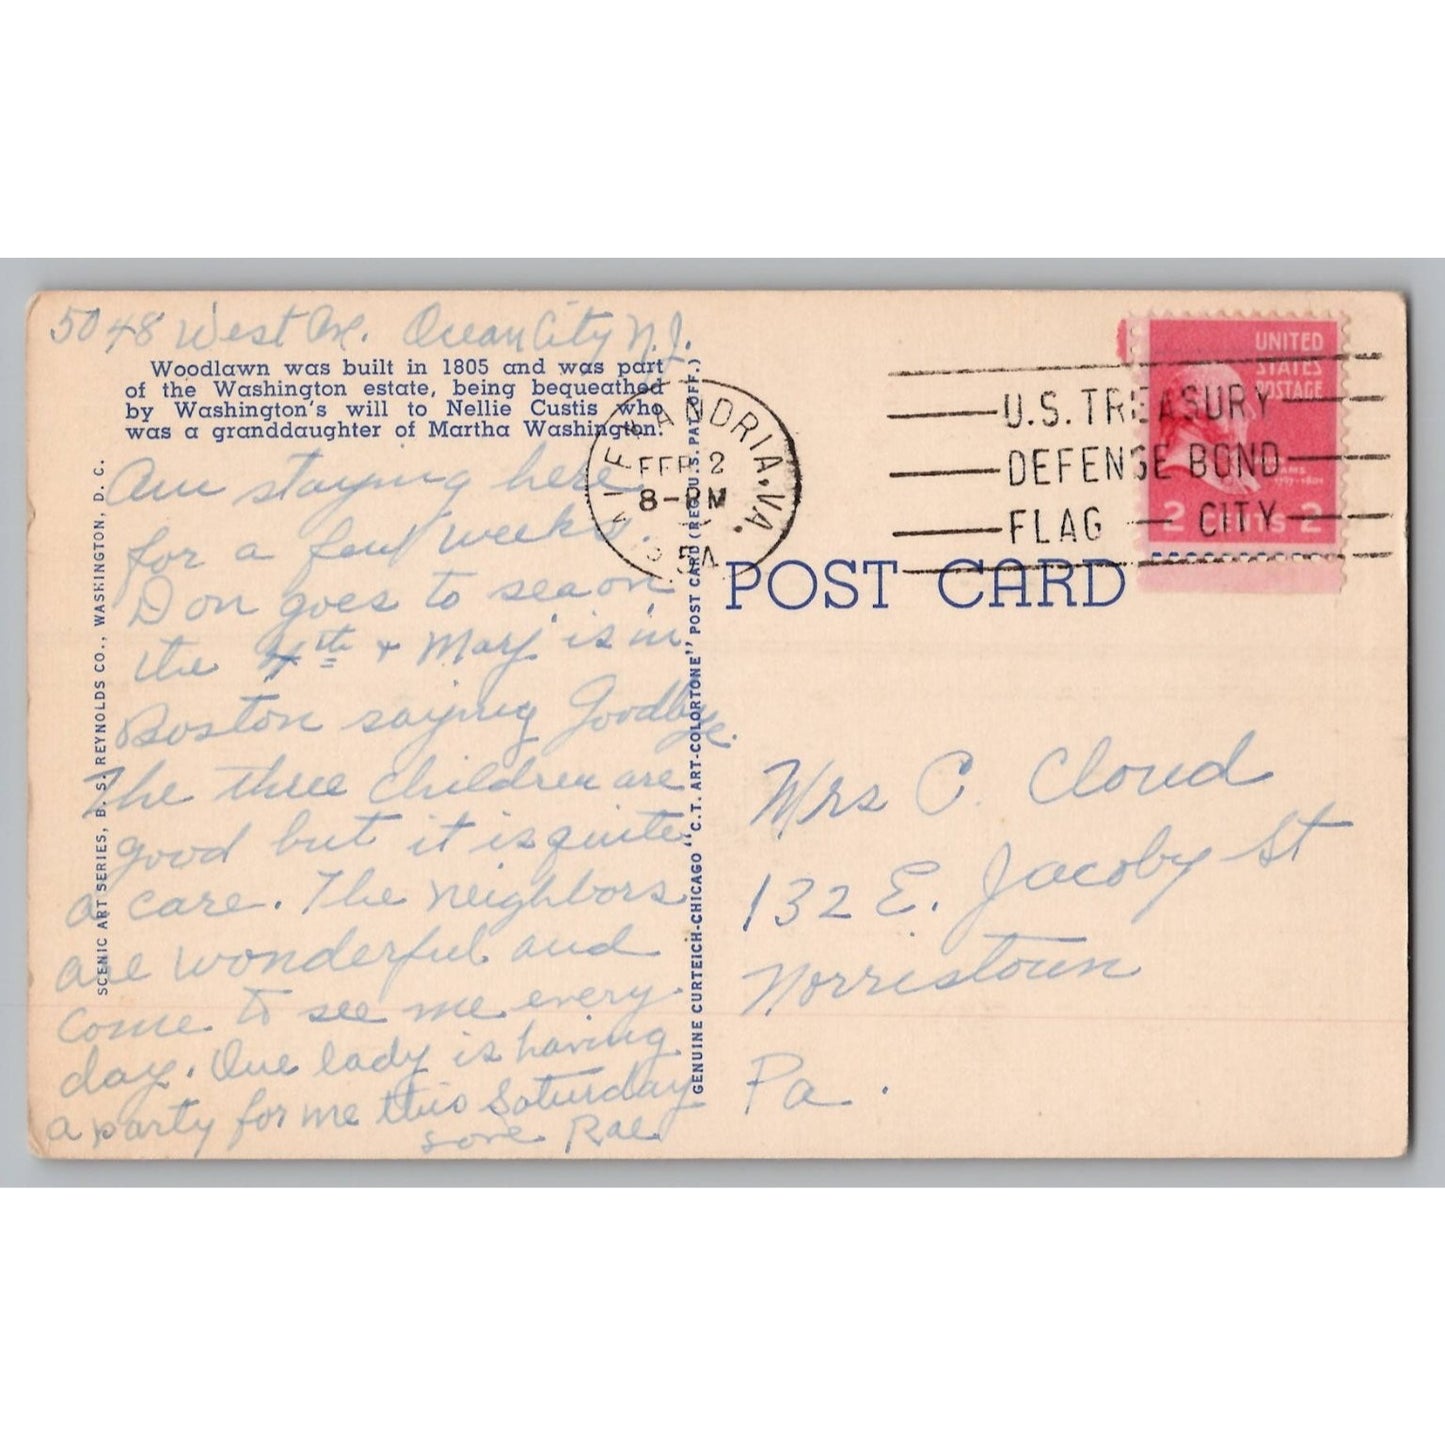 5048 West Ave. Ocean City N.J.
Woodlawn was built in 1805 and was part
of the Washington estate, being bequeathed
by Washington's will to Nellie Custis who
was a granddaughter of Martha Washington.
Am staying here
for a few weeks.
Don goes to sea on
the 4th + Marj is in
Boston saying Goodbye.
The three children are
good but it is quite
a care. The neighbors
are wonderful and
come to see me every
day. One lady is having
a party for me this Saturday
Love Rae
SCENIC ART SERIES, B. S. REYNOLDS CO., WASHINGTON, D. C.
GENUINE CURTEICH-CHICAGO "C.T. ART-COLORTONE" POST CARD (REG. U.S. PAT. OFF.)
ALEXANDRIA, VA.
FEB 2
8-PM
U.S. TREASURY
DEFENSE BOND
FLAG CITY
UNITED
STATES
POSTAGE
2 CENTS 2
POST CARD
Mrs C. Cloud
132 E. Jacoby St
Norristown
Pa.